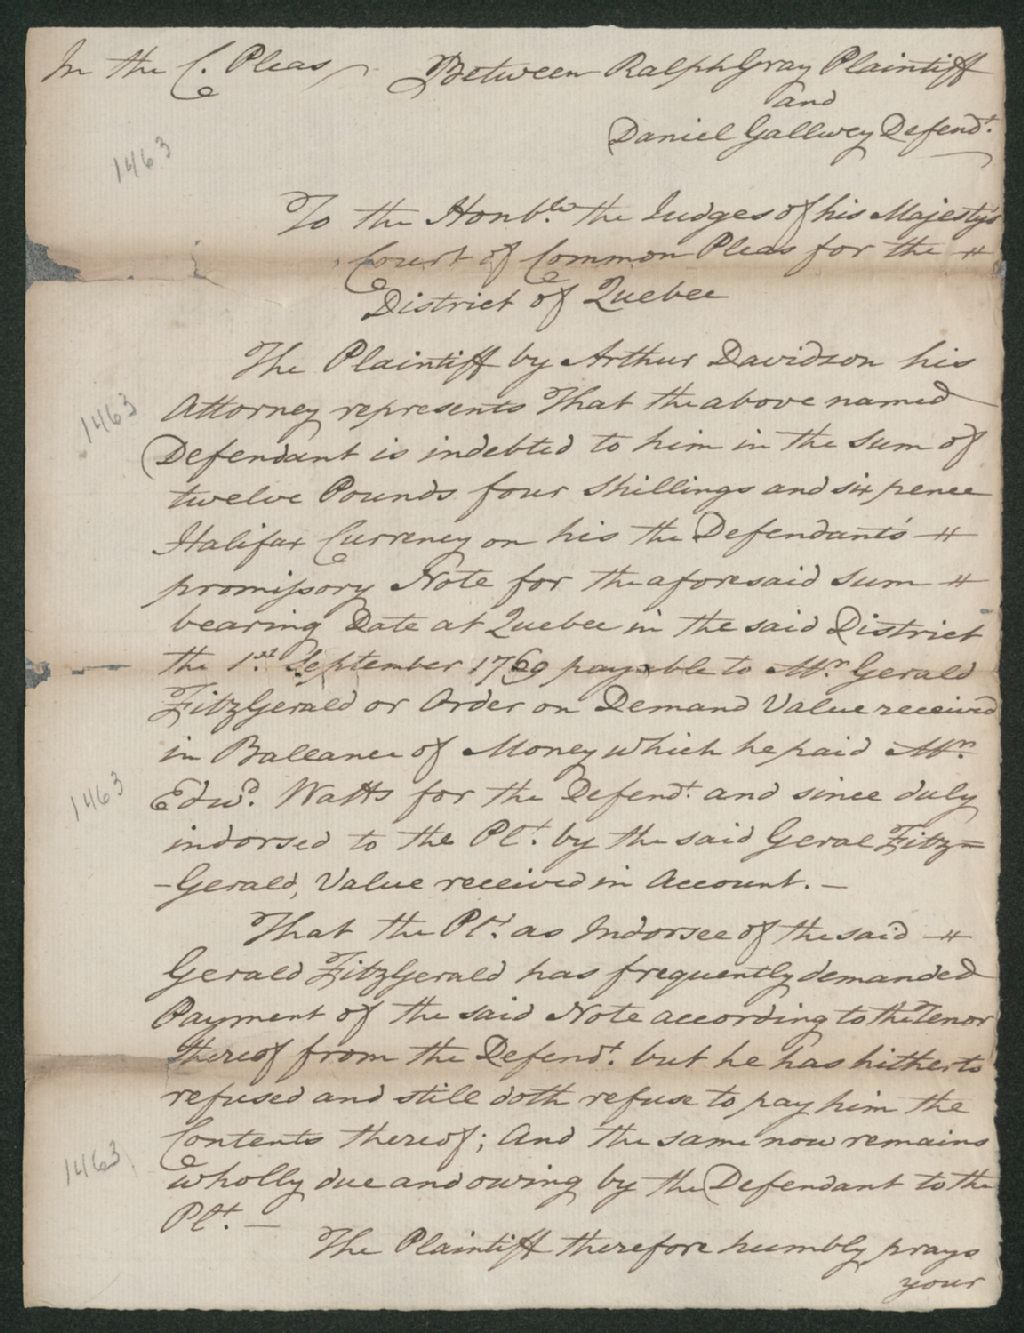 In the C. Pleas Between Ralph Gray Plaintiff
and
Daniel Gallwey Defendt.
1463
To the Honble. the Judges of his Majesty's
Court of Common Pleas for the
District of Quebec
The Plaintiff by Arthur Davidson his
Attorney represents That the above named
1463
Defendant is indebted to him in the Sum of
twelve Pounds four Shillings and six pence
Halifax Currency on his the Defendant's
promissory Note for the aforesaid Sum
bearing Date at Quebec in the said District
the 1.st September 1769 payable to Mr. Gerald
FitzGerald or Order on Demand Value received
in Balleance of Money which he paid Mr.
1463
Edwd. Watts for the Defendt. and since duly
indorsed to the Plt. by the said Geral Fitz=
-Gerald, Value received in Account. —
That the Plt. as Indorsee of the said
Gerald FitzGerald has frequently demanded
Payment of the said Note according to the Tenor
thereof from the Defendt. but he has hitherto
refused and still doth refuse to pay him the
Contents thereof; And the same now remains
1463
wholly due and owing by the Defendant to the
Plt. —
The Plaintiff therefore humbly prays
your